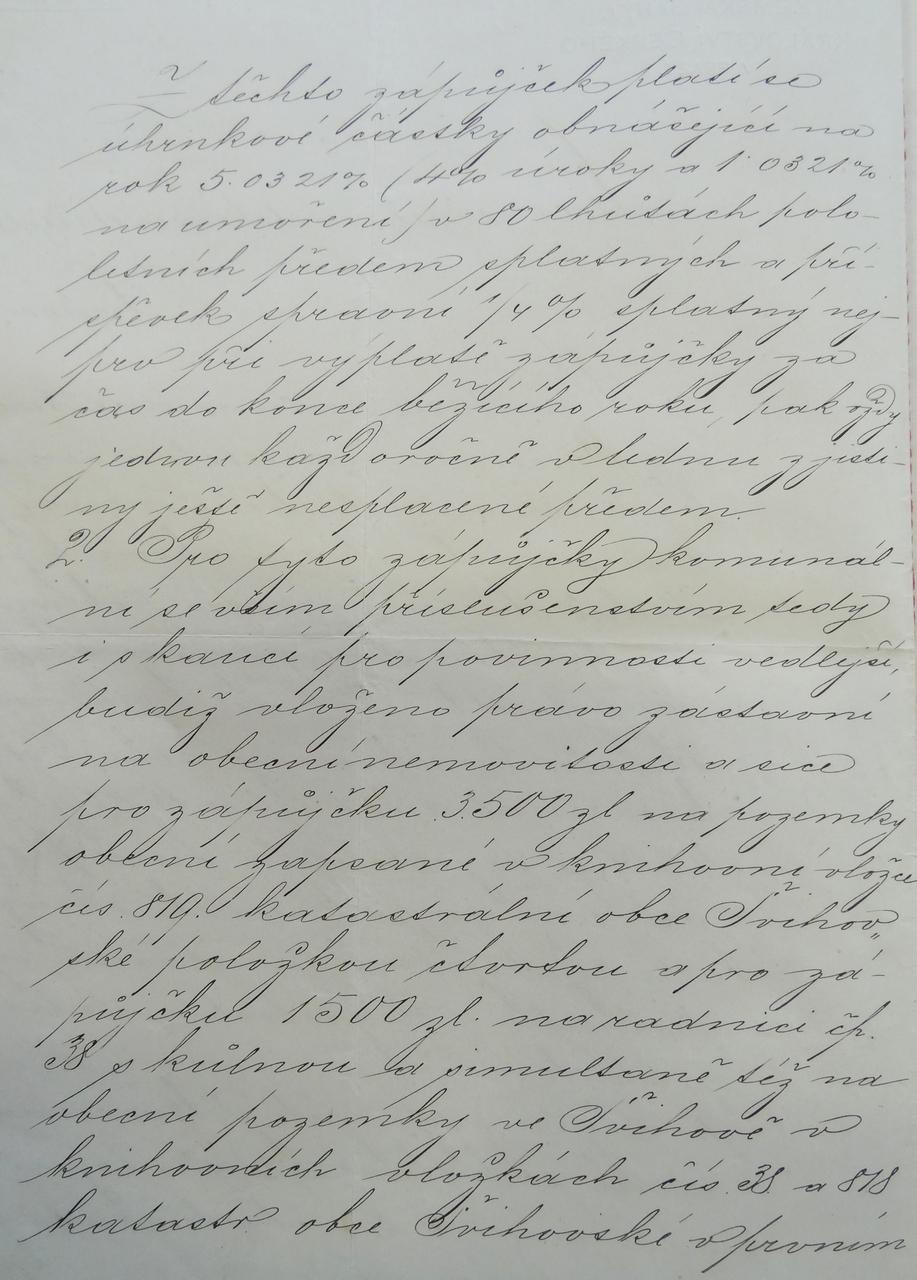 Z těchto zápůjček platí se
úhrnkové částky obnášející na
rok 5.0321% (4% úroky a 1.0321%
na umoření) v 80 lhůtách polo-
letních předem splatných a pří-
spěvek správní 1/4% splatný nej-
prv při výplatě zápůjčky za
čas do konce běžícího roku, pak vždy
jednou každoročně v lednu z jisti-
ny ještě nesplacené předem.
2. Pro tyto zápůjčky komunál-
ní se vším příslušenstvím tedy
i s kaucí pro povinnosti vedlejší,
budiž vloženo právo zástavní
na obecní nemovitosti a sice
pro zápůjčku 3.500 zl na pozemky
obecní zapsané v knihovní vložce
čís. 819. katastrální obce Švihov„
ské položkou čtvrtou a pro zá-
půjčku 1500 zl. na radnici čp.
38 s kůlnou a simultaně též na
obecní pozemky ve Švihově v
knihovních vložkách čís. 38. a 818
katastr. obce Švihovské v prvním